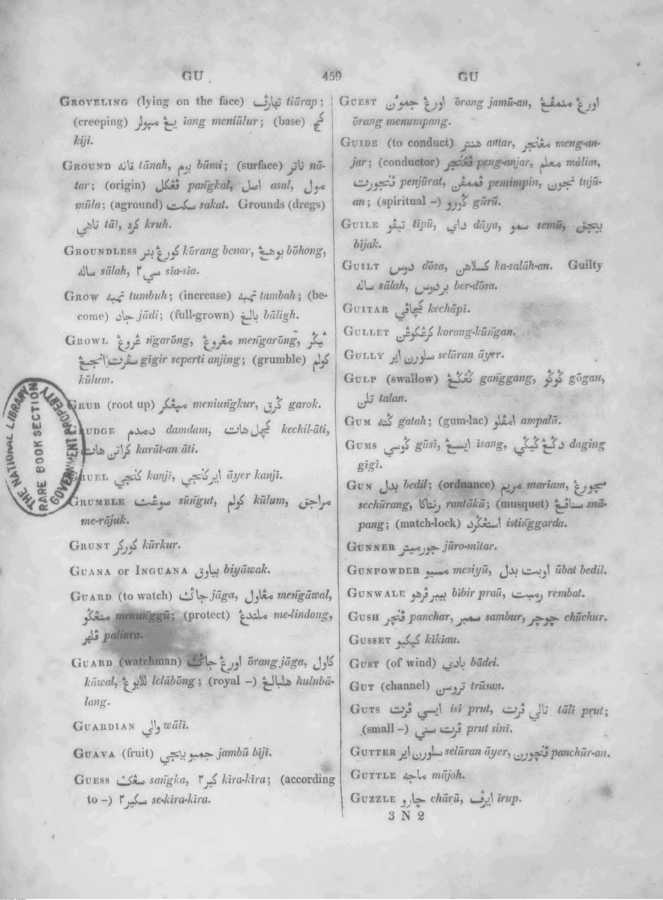 GU 459 GU
GROVELING (lying on the face) تيهارف tiārap;
(creeping) ميولر يڠ iang meniūlur; (base) كج
kiji.
GROUND تانه tānah, بوم būmi; (surface) ناتر nā-
tar; (origin) ڤڠكل pañgkal, اصل asal, مول
mūla; (aground) سكت sakat. Grounds (dregs)
تاهي tāi, كره kruh.
GROUNDLESS كورڠ بنر kūrang benar, بوهڠ bōhong,
ساله sālah, سي٢ sia-sia.
GROW تمبه tumbuh; (increase) تمبه tambah; (be-
come) جاد jādi; (full-grown) بالغ bāligh.
GROWL ڠروڠ ñgarōng, مڠروڠ meñgarōng,
gigir seperti anjing; (grumble) كولم
kūlum.
GRUB (root up) meniuñgkur, garok.
دمدم damdam, كيچل هات kechil-āti,
كراتن هات karāt-an āti.
كنجي kanji, اير كنجي āyer kanji.
GRUMBLE سوڠت sūñgut, كولم kūlum, مراجق
me-rājuk.
GRUNT كوركر kūrkur.
GUANA or INGUANA بياوق biyāwak.
GUARD (to watch) جاݢ jāga, مڠاول meñgāwal,
منڠݢو menuñggū; (protect) ملندڠ me-lindong,
GUARD (watchman) اورڠ جاݢ ōrang jāga, كاول
kāwal, للابوڠ lelābōng; (royal -) هلبالڠ hulubā-
lang.
GUARDIAN والي wāli.
GUAVA (fruit) جمبو بيجي jambū bīji.
GUESS سڠك sañgka, كير٢ kira-kira; (according
to -) سكير٢ se-kira-kira.
GUEST اورڠ جموان ōrang jamū-an, اورڠ منمڤڠ
ōrang menumpang.
GUIDE (to conduct) هنتر antar, مڠنجر meng-an-
jar; (conductor) ڤڠنجر peng-anjar, معلم mālim,
ڤنجورت penjūrat, ڤممڤن pemimpin, تجوان tujū-
an; (spiritual -) ݢورو gūrū.
GUILE تيڤو tīpū, داي dāya, سمو semū, بيجق
bijak.
GUILT دوس dōsa, كسلاهن ka-salāh-an. Guilty
ساله sālah, بردوس ber-dōsa.
GUITAR كچاڤي kechāpi.
GULLET كرڠكوڠن korong-kūñgan.
GULLY سلورن اير selūran āyer.
GULP (swallow) gañggang, gōgan,
تلن talan.
GUM گته gatah; (gum-lac) امڤلو ampalū.
GUMS ݢوسي gūsi, ايسڠ isang, داݢڠ ݢيݢي daging
gigi.
GUN بدل bedil; (ordnance) مريم mariam,
sechūrang, رنتاك rantākā; (musquet) سناڤڠ snā-
pang; (match-lock) استڠݢرد istiñggarda.
GUNNER جورميتر jūro-mītar.
GUNPOWDER مسيو mesiyū, اوبت بدل ūbat bedil.
GUNWALE بيبر ڤرهو bibir praū, رمبت rembat.
GUSH ڤنچر panchar, سمبر sambur, چوچر chūchur.
GUSSET كيكيو kikiau.
GUST (of wind) بادي bādei.
GUT (channel) تروسن trūsan.
GUTS ايسي ڤرت isi prut, تالي ڤرت tāli prut;
(small -) ڤرت سني prut sini.
GUTTER سلورن اير selūran āyer, ڤنچورن panchūr-an.
GUTTLE ماجه mājoh.
GUZZLE چارو chārū, ايرڤ irup.
3 N 2
THE NATIONAL LIBRARY
RARE BOOK SECTION
GOVERNMENT PROPERTY